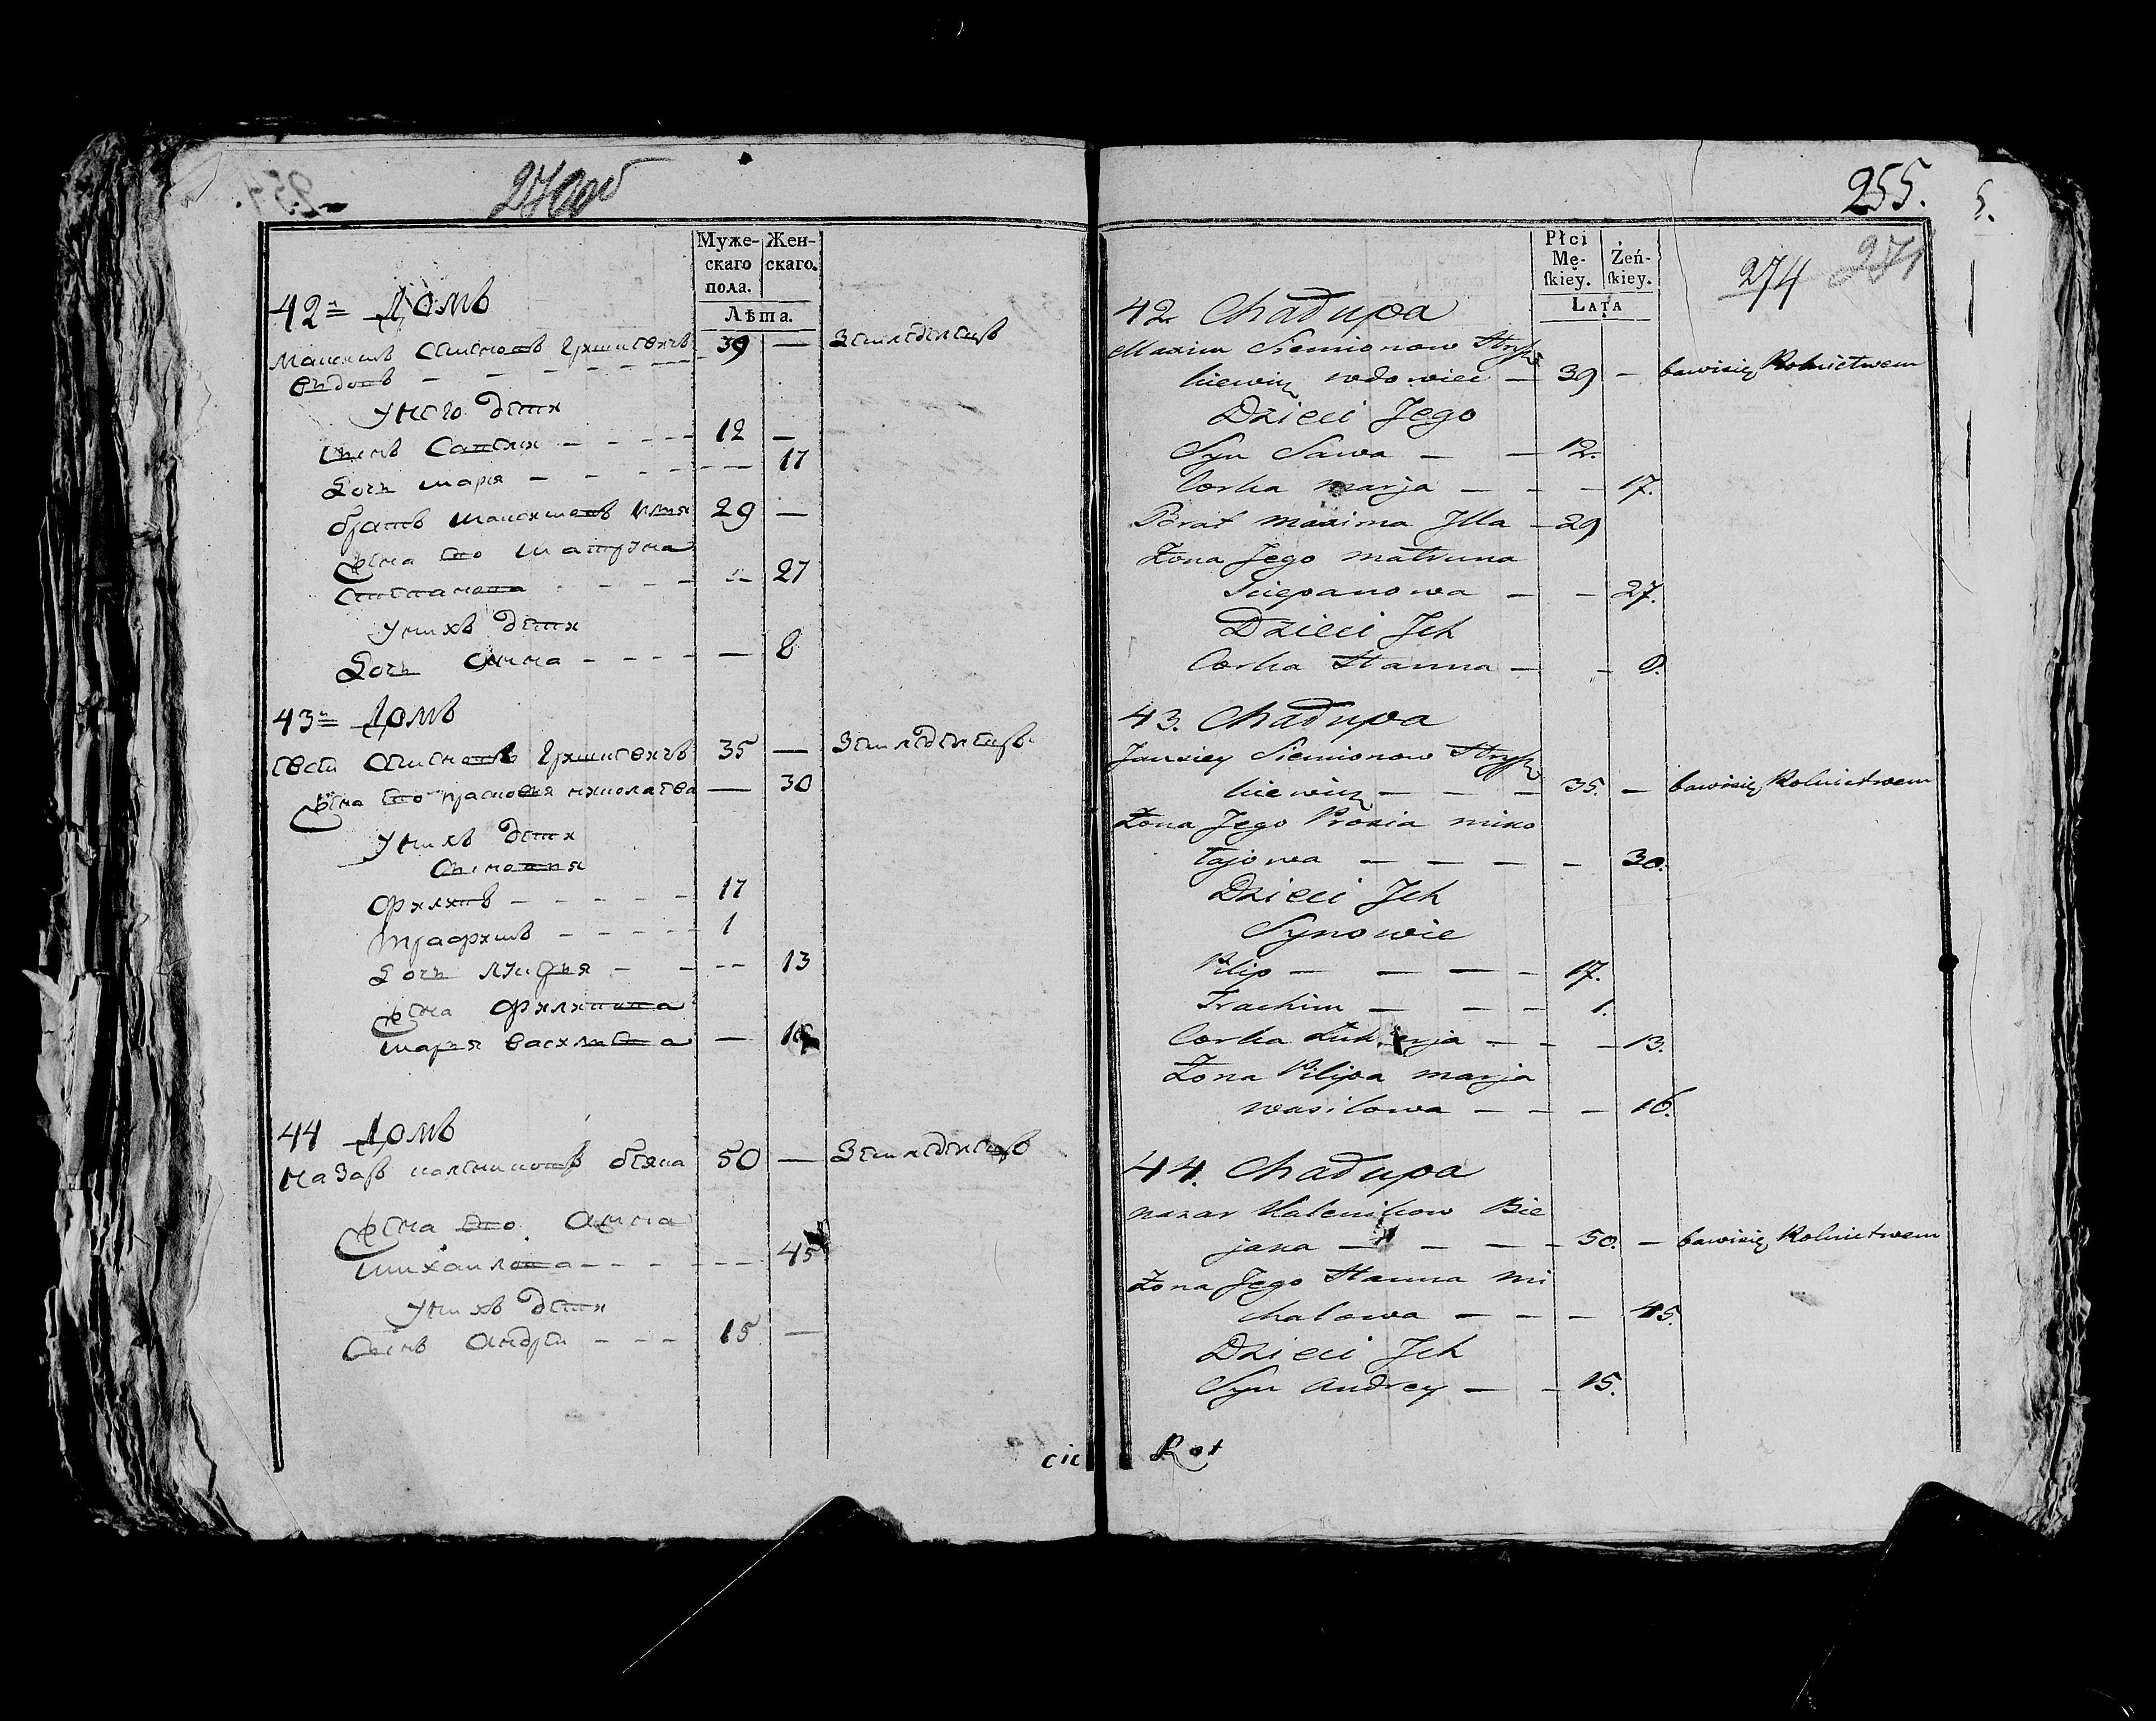 270об
Муже-
скаго
пола.
Жен-
скаго.
Лѣта.
42й Домъ
Максимъ Семеновъ Гришкевичъ 39 — Земледелецъ
вдовъ — — — — — —
У него дети
Сынъ Савели — — — — 12 —
Дочь Мария — — — — — 17
братъ Максимовъ Илия 29 —
жена его Матруна
Степанова — — — — — 27
У них дети
Дочь Анна — — — — — 8
43й Домъ
Евсей Семеновъ Гришкевичъ 35 — Земледелецъ
жена его Прасковия Николаева — 30
У них дети
Сыновия
Филипъ — — — — — 17
Трафимъ — — — — — 1
Дочь Лукерия — — — — 13
жена Филипова
Мария Василева — 16
44 Домъ
Назаръ Калениковъ Беяна 50 — Земледелецъ
жена его Анна
Михаилова — — — — — — 45
У них дети
Сынъ Андрей — — — 15 —
cie
255.
274
Płci
Mę-
skiey.
Żeń-
skiey.
Lata
42. Chałupa
Maxim Siemionow Hrysz
kiewicz wdowiec — 39 — bawisię Rolnictwem
Dzieci Jego
Syn Sawa — — 12.
Corka Marja — — — 17.
Brat Maxima Illa — 29
Żona Jego Matruna
Sciepanowa — — 27.
Dzieci Jch
Corka Hanna — — 8.
43. Chałupa
Jausiey Siemionow Hrysz
kiewicz — — — 35. — bawisię Rolnictwem
Żona Jego Prosia Miko
łajowa — — — — 30.
Dzieci Jch
Synowie
Pilip — — — — 17.
Trachim — — — 1.
Corka Łukierja — — — 13.
Żona Pilipa Marja
Wasilowa — — — 16.
44. Chałupa
Nazar Kalenikow Bie
jana — — — — 50. — bawisię Rolnictwem
Żona Jego Hanna Mi
chałowa — — — 45.
Dzieci Jch
Syn Andrey — — 15.
Rot